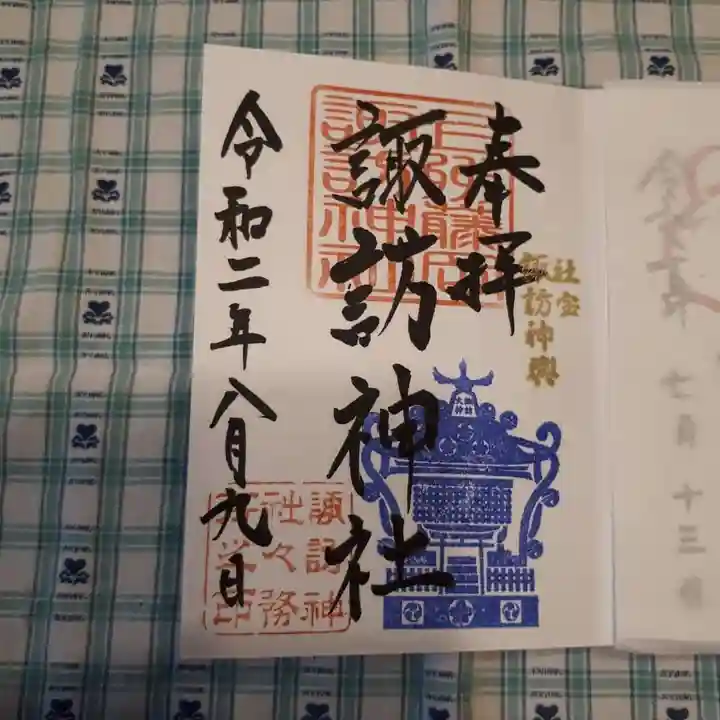 奉拝
社宝
諏訪神輿
諏訪神社
令和二年八月九日
諏訪神
社々務
所之印
七月十三日